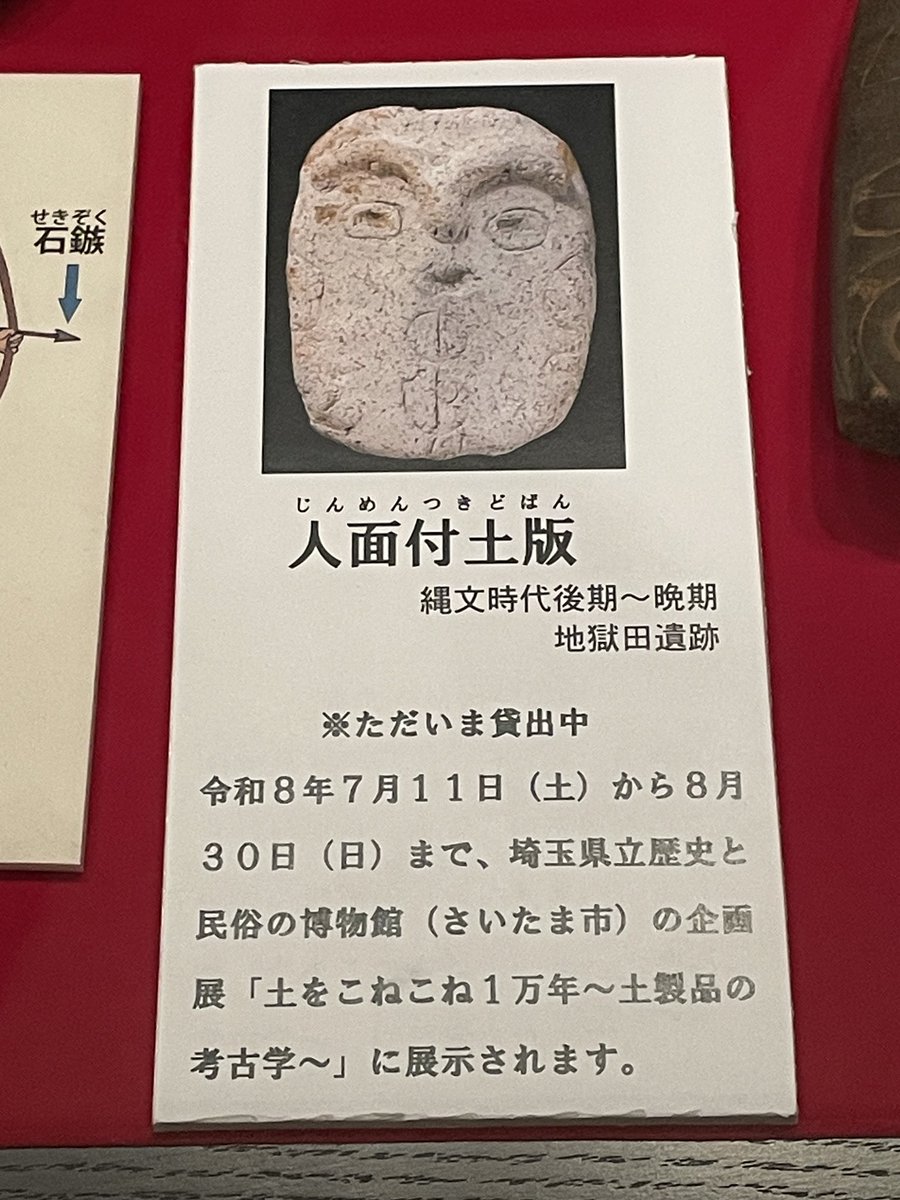 せきぞく
石鏃
じんめんつきどばん
人面付土版
縄文時代後期～晩期
地獄田遺跡
※ただいま貸出中
令和８年７月１１日（土）から８月
３０日（日）まで、埼玉県立歴史と
民俗の博物館（さいたま市）の企画
展「土をこねこね１万年～土製品の
考古学～」に展示されます。